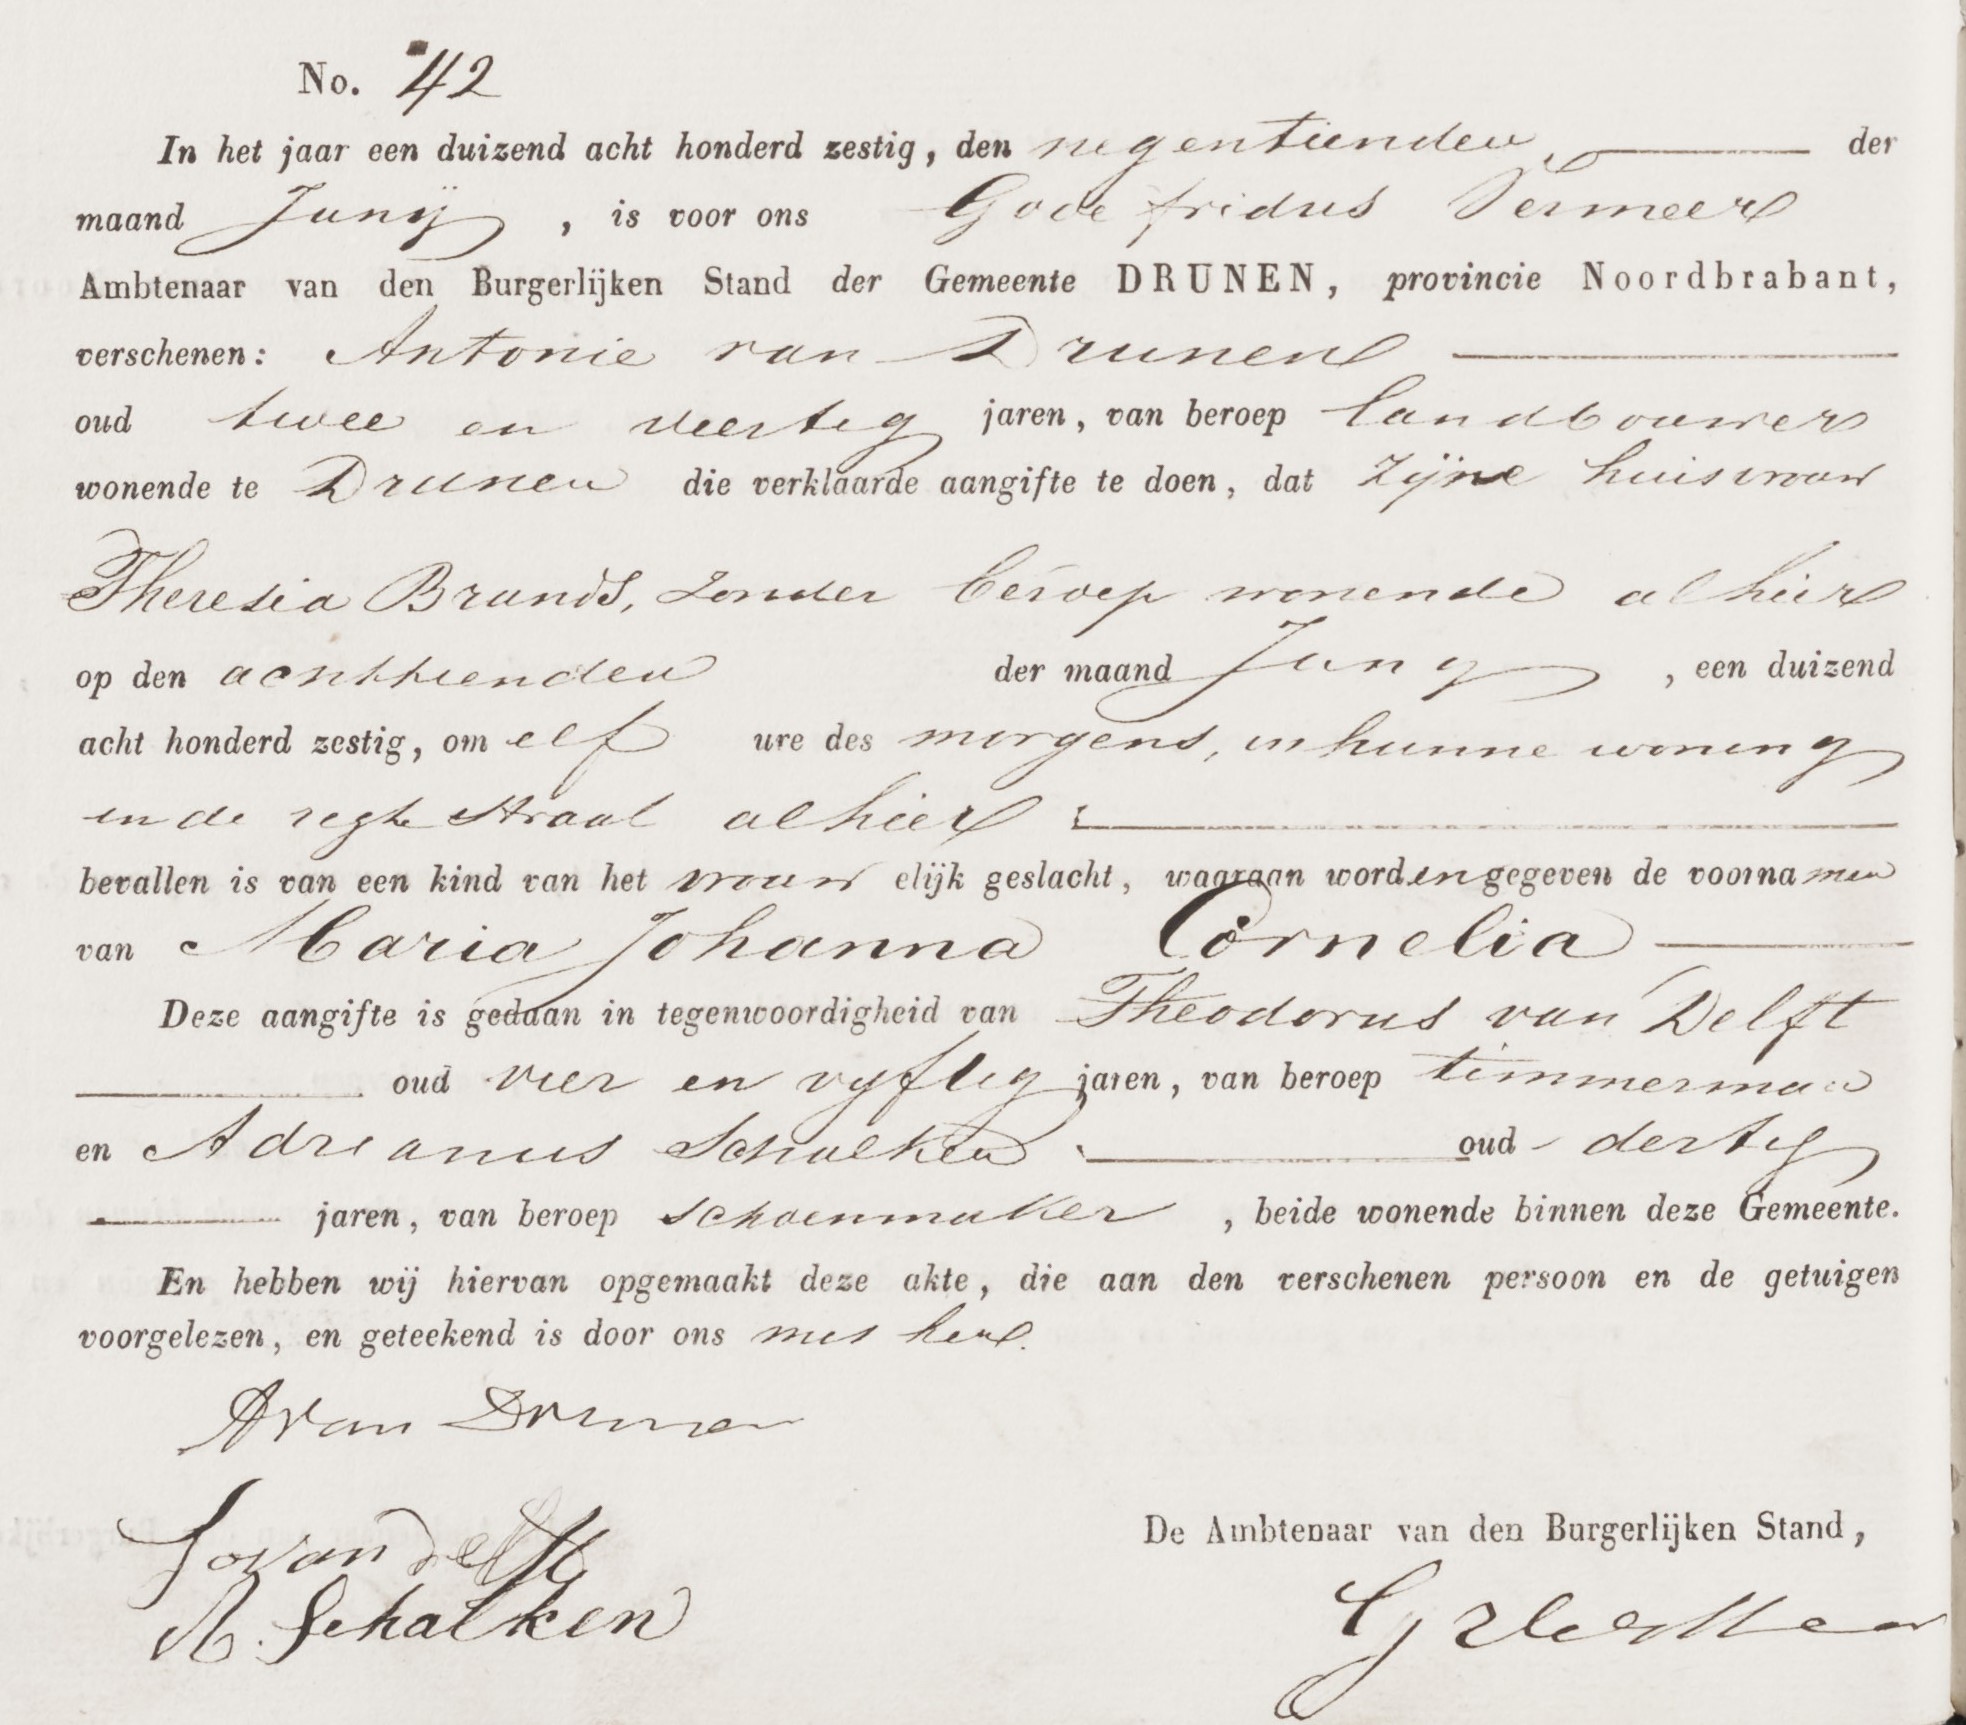 No. 42
In het jaar een duizend acht honderd zestig, den negentienden der
maand Junij, is voor ons Godefridus Vermeer
Ambtenaar van den Burgerlijken Stand der Gemeente DRUNEN, provincie Noordbrabant,
verschenen: Antonie van Drunen
oud twee en veertig jaren, van beroep landbouwer
wonende te Drunen die verklaarde aangifte te doen, dat zijne huisvrouw
Theresia Brands, zonder beroep wonende alhier
op den achttienden der maand Juny, een duizend
acht honderd zestig, om elf ure des morgens, in hunne woning
in de regte straat alhier
bevallen is van een kind van het vrouwelijk geslacht, waaraan worden gegeven de voornamen
van Maria Johanna Cornelia
Deze aangifte is gedaan in tegenwoordigheid van Theodorus van Delft
oud vier en vyftig jaren, van beroep timmerman
en Adrianus Schalken oud dertig
jaren, van beroep schoenmaker, beide wonende binnen deze Gemeente.
En hebben wij hiervan opgemaakt deze akte, die aan den verschenen persoon en de getuigen
voorgelezen, en geteekend is door ons met hen.
A van Drunen
van delft
A. Schalken
De Ambtenaar van den Burgerlijken Stand,
G VerMeer